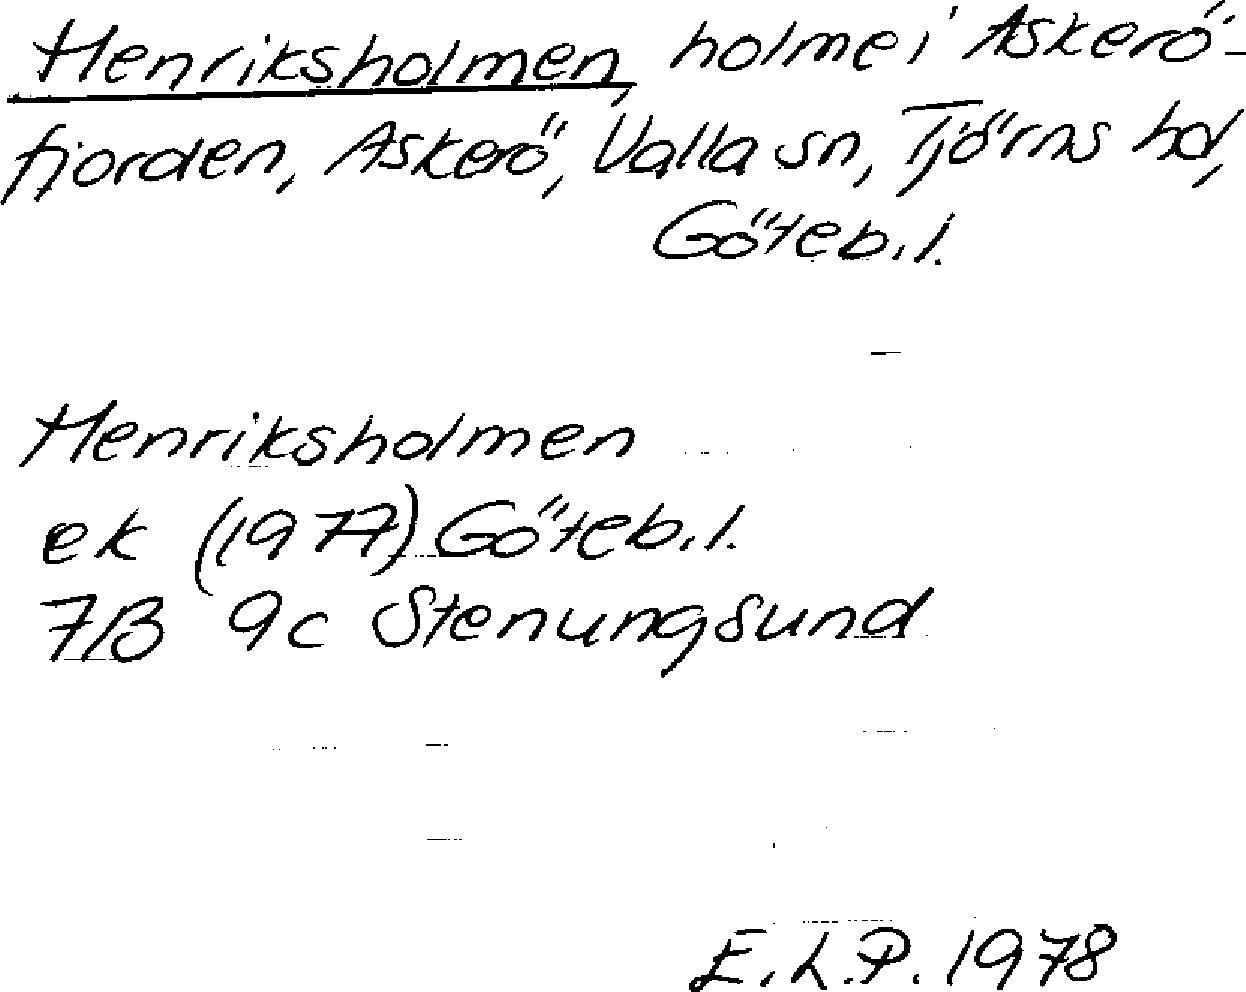 Henriksholmen, holme i Askerö-
fjorden, Askerö, Valla sn, Tjörns hd,
Göteb. l.
Henriksholmen
ek (1977) Göteb. l.
7B 9c Stenungsund
E.L.P. 1978